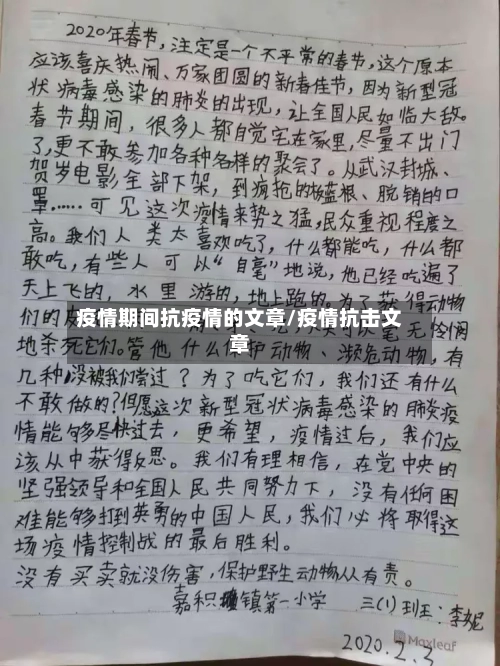 2020年春节,注定是一个不平常的春节,这个原本
应该喜庆热闹、万家团圆的新春佳节,因为新型冠
状病毒感染的肺炎的出现,让全国人民如临大敌。
春节期间,很多人都自觉宅在家里,尽量不出门
了,更不敢参加各种各样的聚会了。从武汉封城、
贺岁电影全部下架,到疯抢的板蓝根、脱销的口
罩……可见这次疫情来势之猛,民众重视程度之
高。我们人类太喜欢吃了,什么都能吃,什么都
敢吃,有些人可以“自毫”地说,他已经吃遍了
天上飞的,水里游的,地上跑的。为了获得动物
们的
疫情期间抗疫情的文章/疫情抗击文
章
毫无怜悯
地杀死它们。管他什么 动物、濒危动物,有
几种没被我们尝过?为了吃它们,我们还有什么
不敢做的?但愿这次新型冠状病毒感染的肺炎疫
情能够尽快过去,更希望,疫情过后,我们应
该从中获得反思。我们有理相信,在党中央的
坚强领导和全国人民共同努力下,没有任何困
难能够打到英勇的中国人民,我们必将取得这
场疫情控制战的最后胜利。
没有买卖就没伤害,保护野生动物从有责。
嘉积 镇第一小学 三(1)班:李妮
2020.2.3
Maxleaf